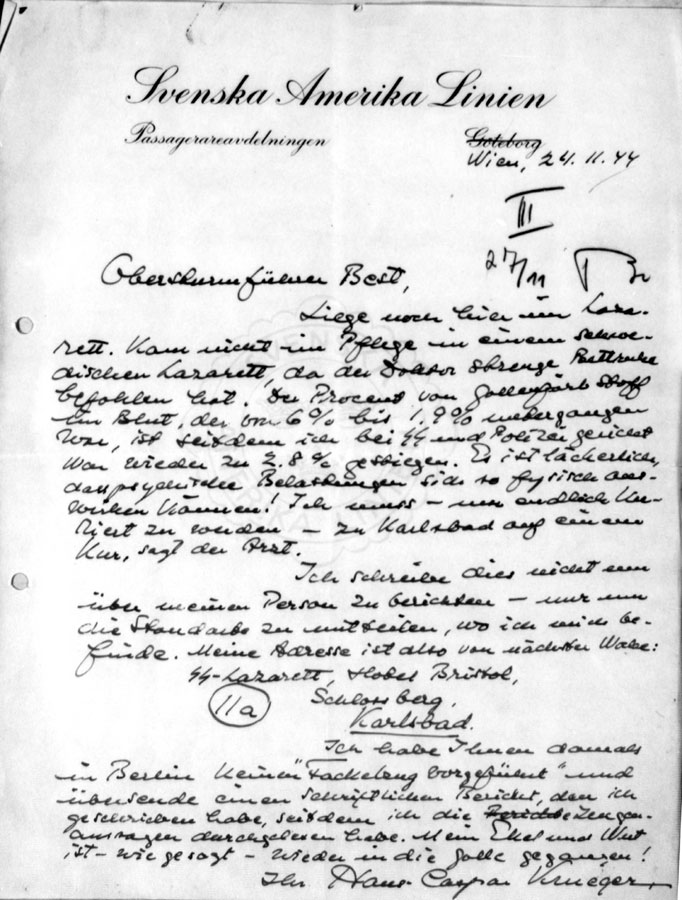 Svenska Amerika Linien
Passagerareavdelningen
Göteborg
Wien, 24.11.44
III
27/11
Obersturmführer Best,
Liege noch hier im Laza-
rett. Kam nicht in Pflege in einem schwe-
dischen Lazarett, da der Doktor strenge Bettruhe
befohlen hat. Der Procent von Gallenfarbstoff
im Blut, der von 6% bis 1.9% untergangen
war, ist seitdem ich bei SS und Polizeigericht
war wieder zu 2.8% gestiegen. Es ist lächerlich,
dass psychische Belastungen sich so fysisch aus-
wirken können! Ich muss – um endlich ku-
riert zu werden – zu Karlsbad auf einem
Kur, sagt der Arzt.
Ich schreibe dies nicht um
über meinen Person zu berichten – nur um
die Standarte zu mitteilen, wo ich mich be-
finde. Meine Adresse ist also von nächster Woche:
SS-Lazarett, Hotel Bristol,
IIa
Schlossberg,
Karlsbad.
Ich habe Ihnen damals
in Berlin keinen "Fackelzug vorgeführt" und
übersende einen schriftlichen Bericht, den ich
geschrieben habe, seitdem ich die Zeugen-
aussagen durchgelesen habe. Mein Ekel und Wut
ist – wie gesagt – wieder in die Galle gegangen!
Ihr Hans Caspar Krueger